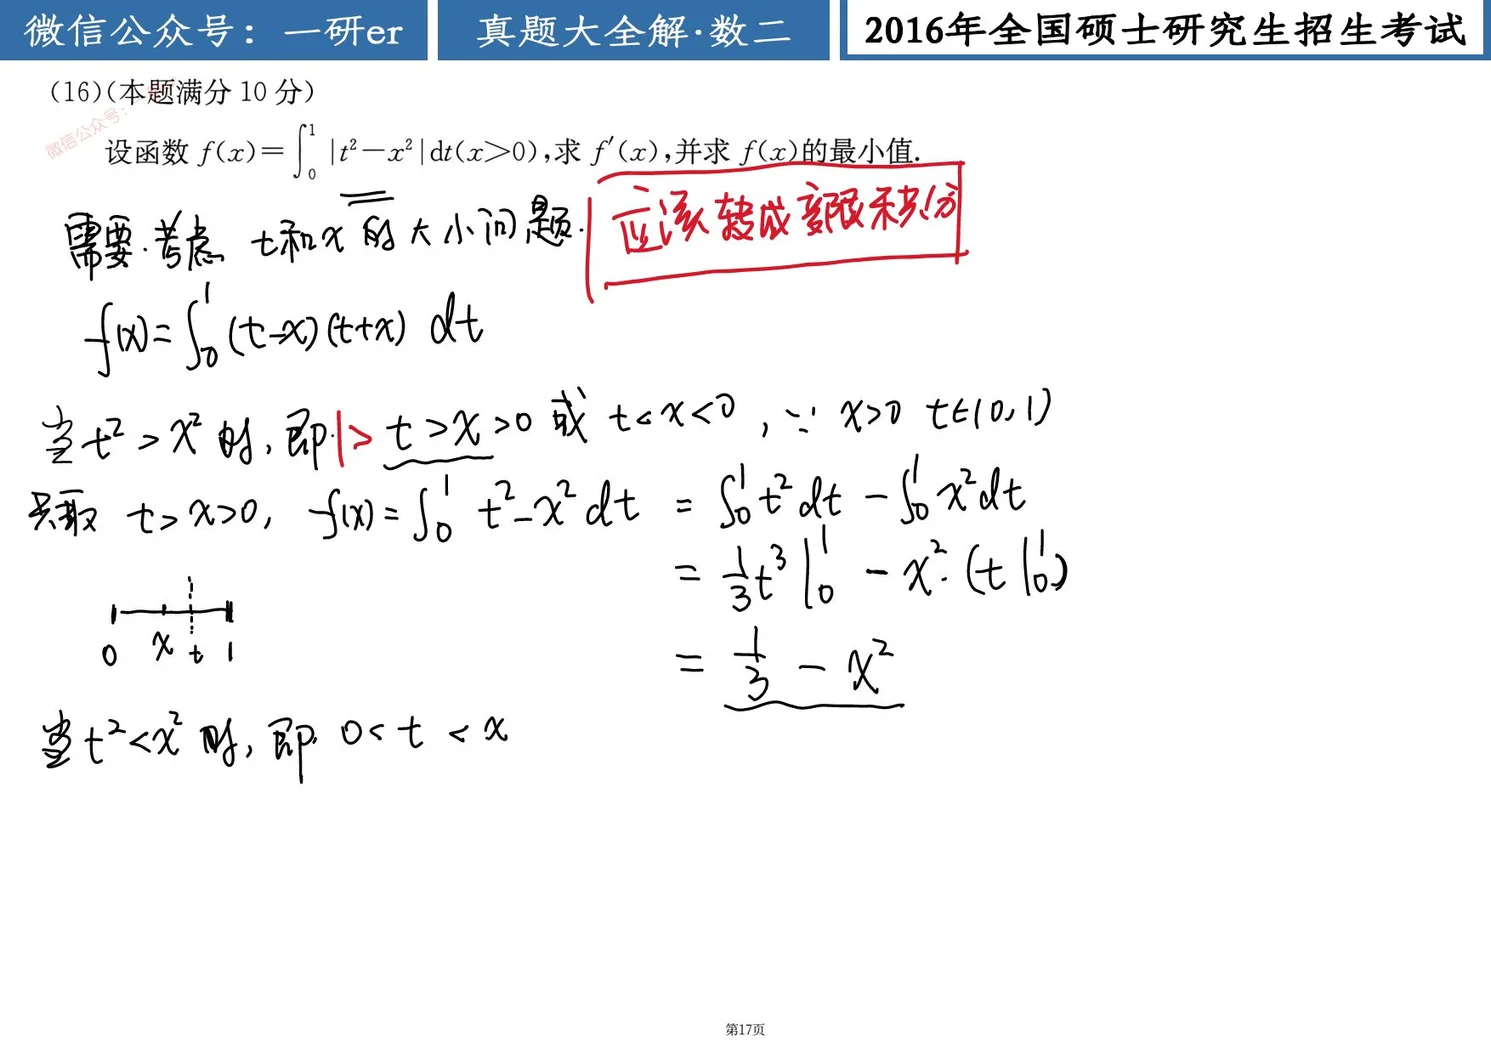 微信公众号：一研er
真题大全解·数二
2016年全国硕士研究生招生考试
(16)(本题满分 10 分)
微信公众号：
设函数 f(x)=∫₀¹|t²-x²|dt(x>0),求 f′(x),并求 f(x)的最小值.
需要考虑 t和x的大小问题.
应该转成变限积分
f(x)=∫₀¹(t-x)(t+x) dt
当t²>x²时,即1>t>x>0或 t<x<0,∵ x>0 t∈(0,1)
只取 t>x>0, f(x)=∫₀¹ t²-x²dt = ∫₀¹t²dt-∫₀¹x²dt
= 1/3 t³|₀¹ - x²·(t|₀¹)
= 1/3 - x²
0 x t 1
当t²<x²时,即 0<t<x
第17页